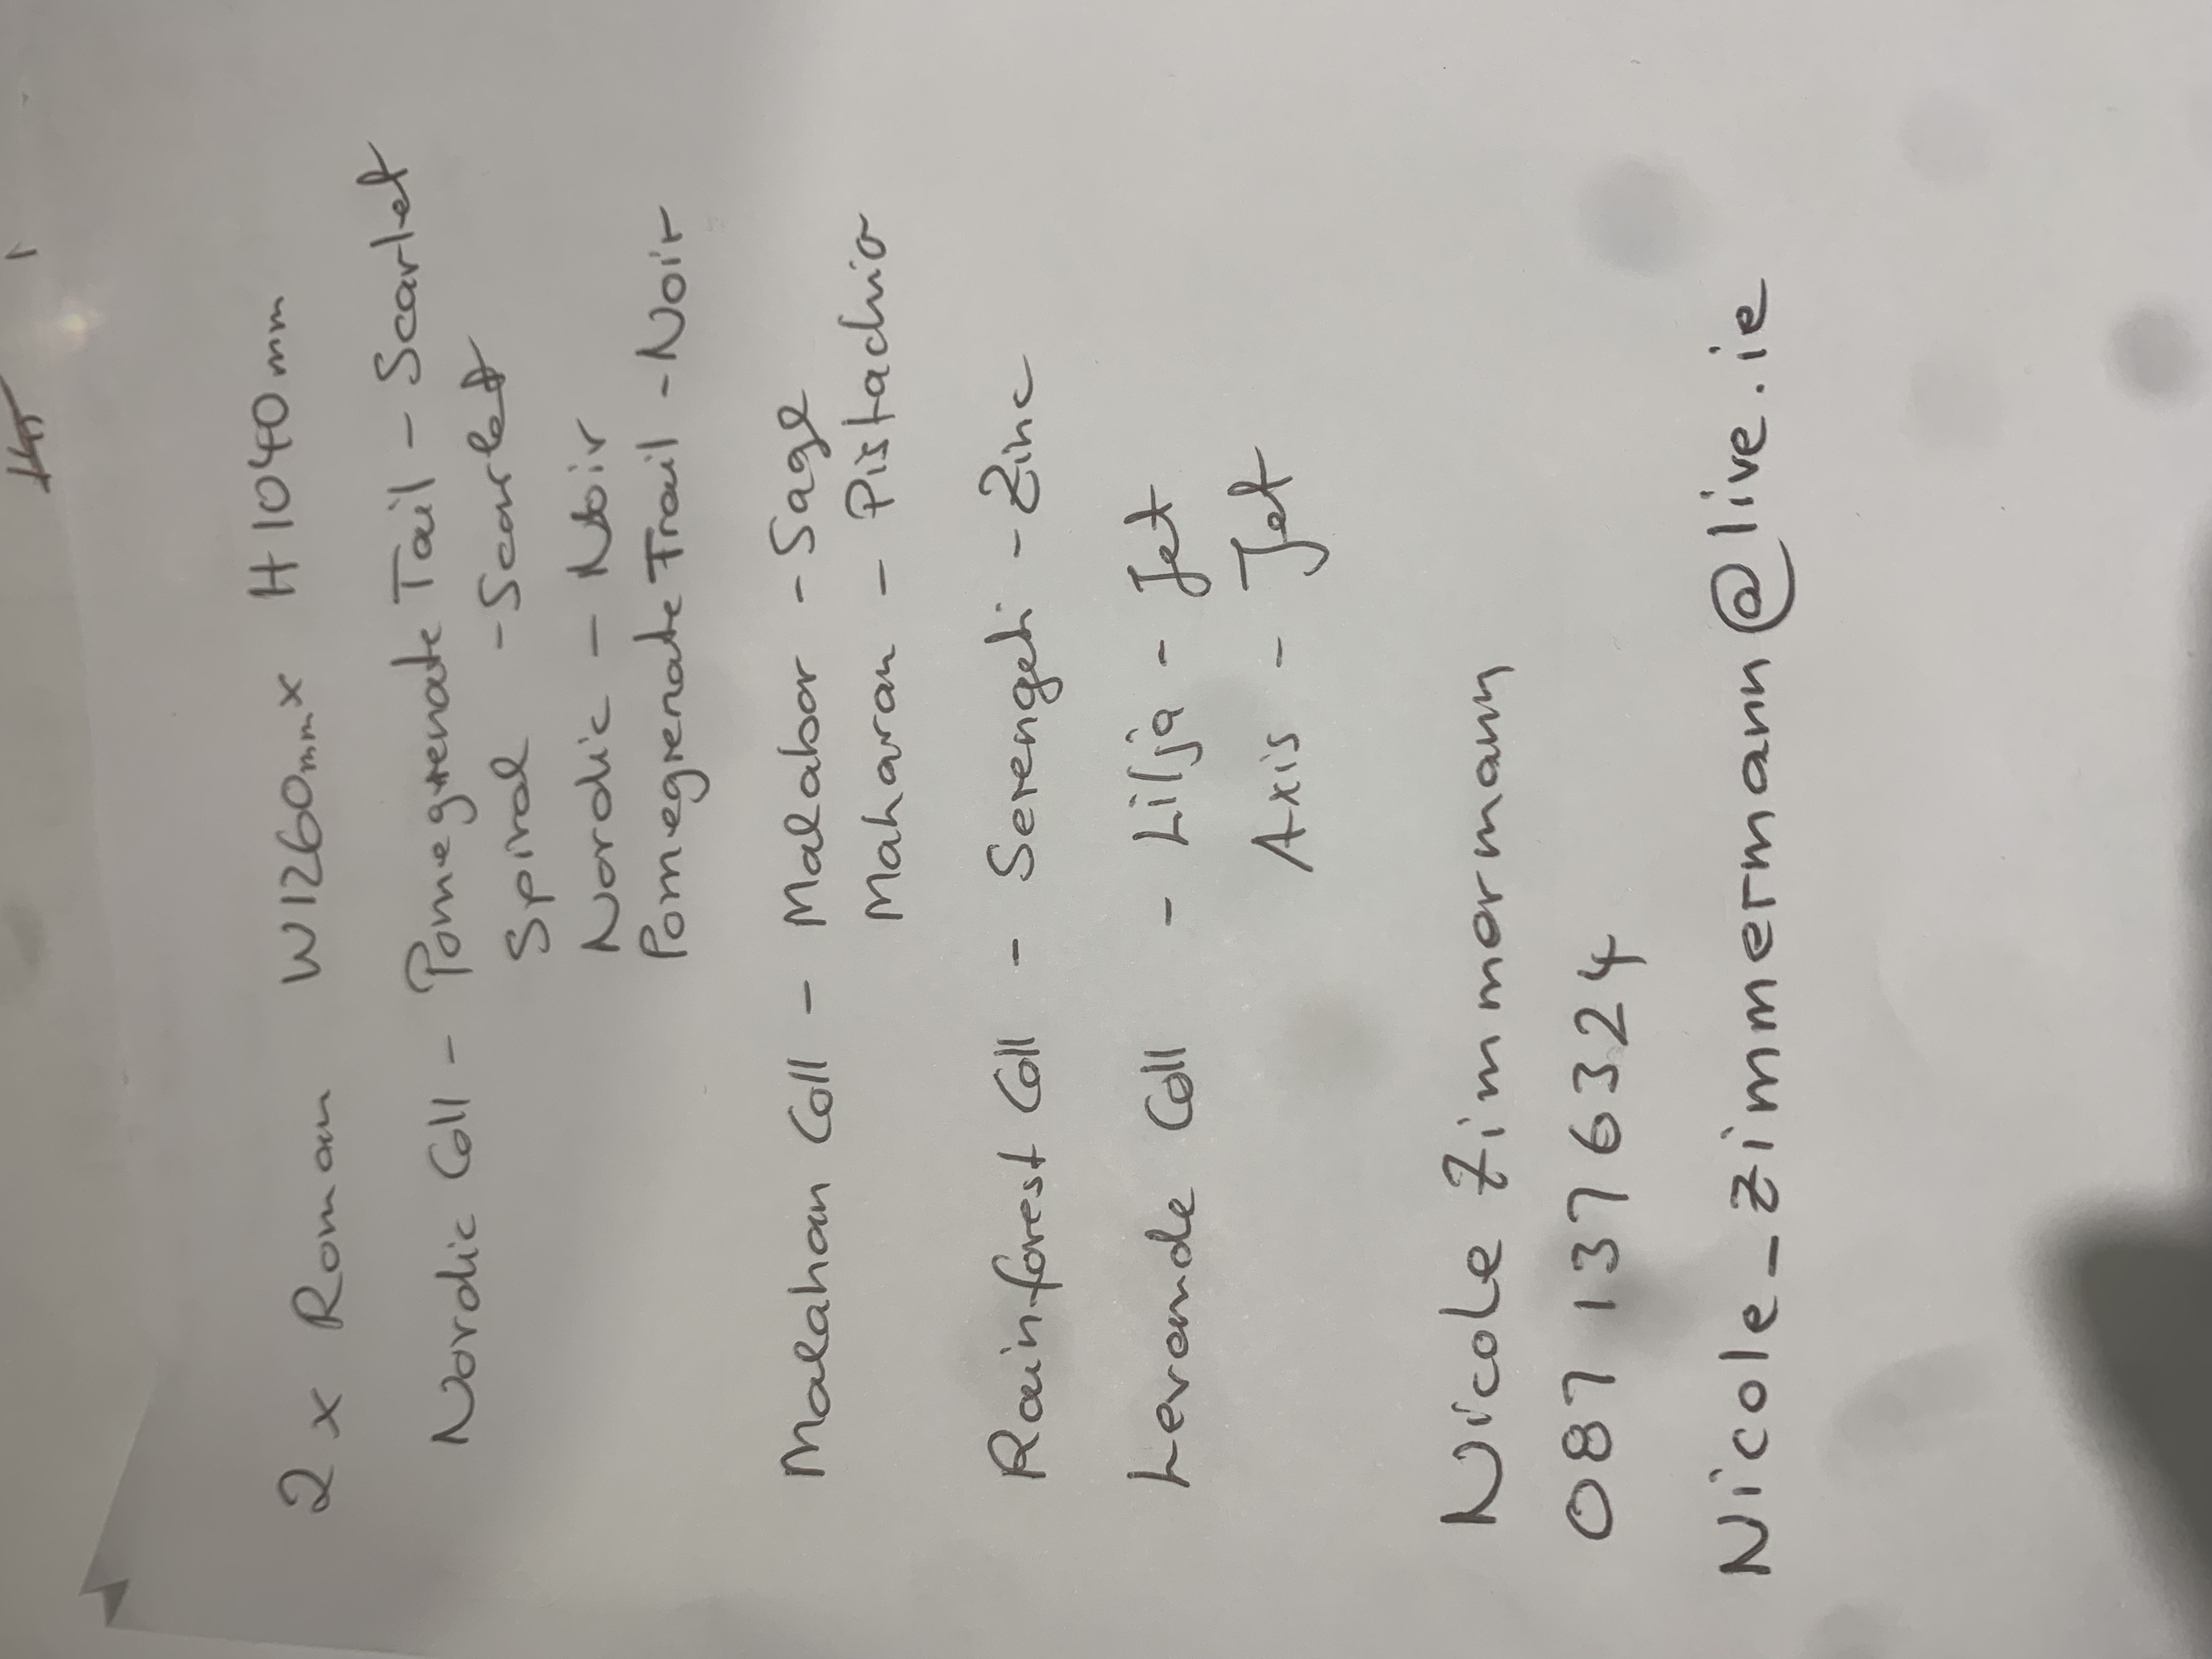 2 x Roman W1260mm x H1040mm
Nordic Coll - Pomegrenate Tail - Scarlet
Spiral - Scarlet
Nordic - Noir
Pomegrenate Trail - Noir
Malahan Coll - Malabar - Sage
Maharan - Pistachio
Rainforest Coll - Serengeti - Zinc
Levande Coll - Lilja - Jet
Axis - Jet
Nicole Zimmermann
087 1376324
Nicole_Zimmermann@live.ie